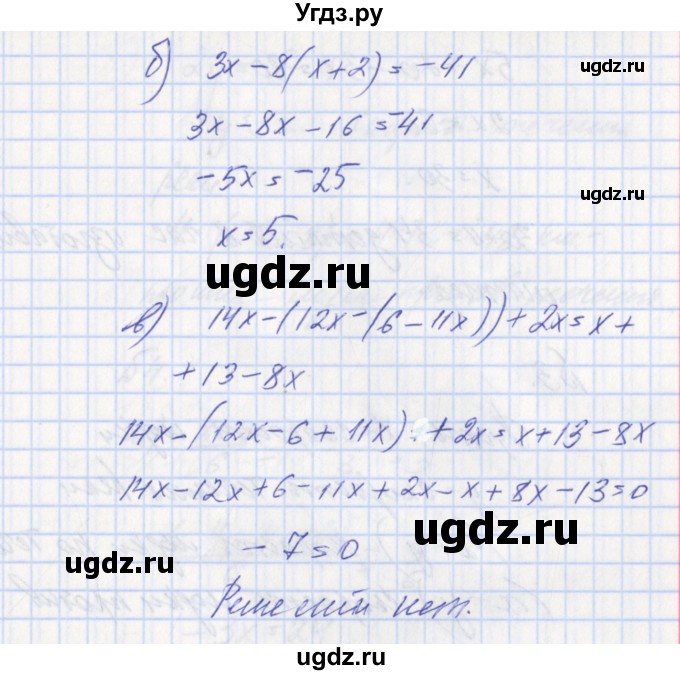 Угдз.ру
б) 3x - 8(x+2) = -41
ugdz.ru
3x - 8x - 16 = -41
-5x = -25
ugdz.ru
x = 5.
ugdz.ru
в) 14x - (12x - (6 - 11x)) + 2x = x +
ugdz.ru
+ 13 - 8x
14x - (12x - 6 + 11x) + 2x = x + 13 - 8x
14x - 12x + 6 - 11x + 2x - x + 8x - 13 = 0
-7 = 0
ugdz.ru
ugdz.ru
Решений нет.
ugdz.ru